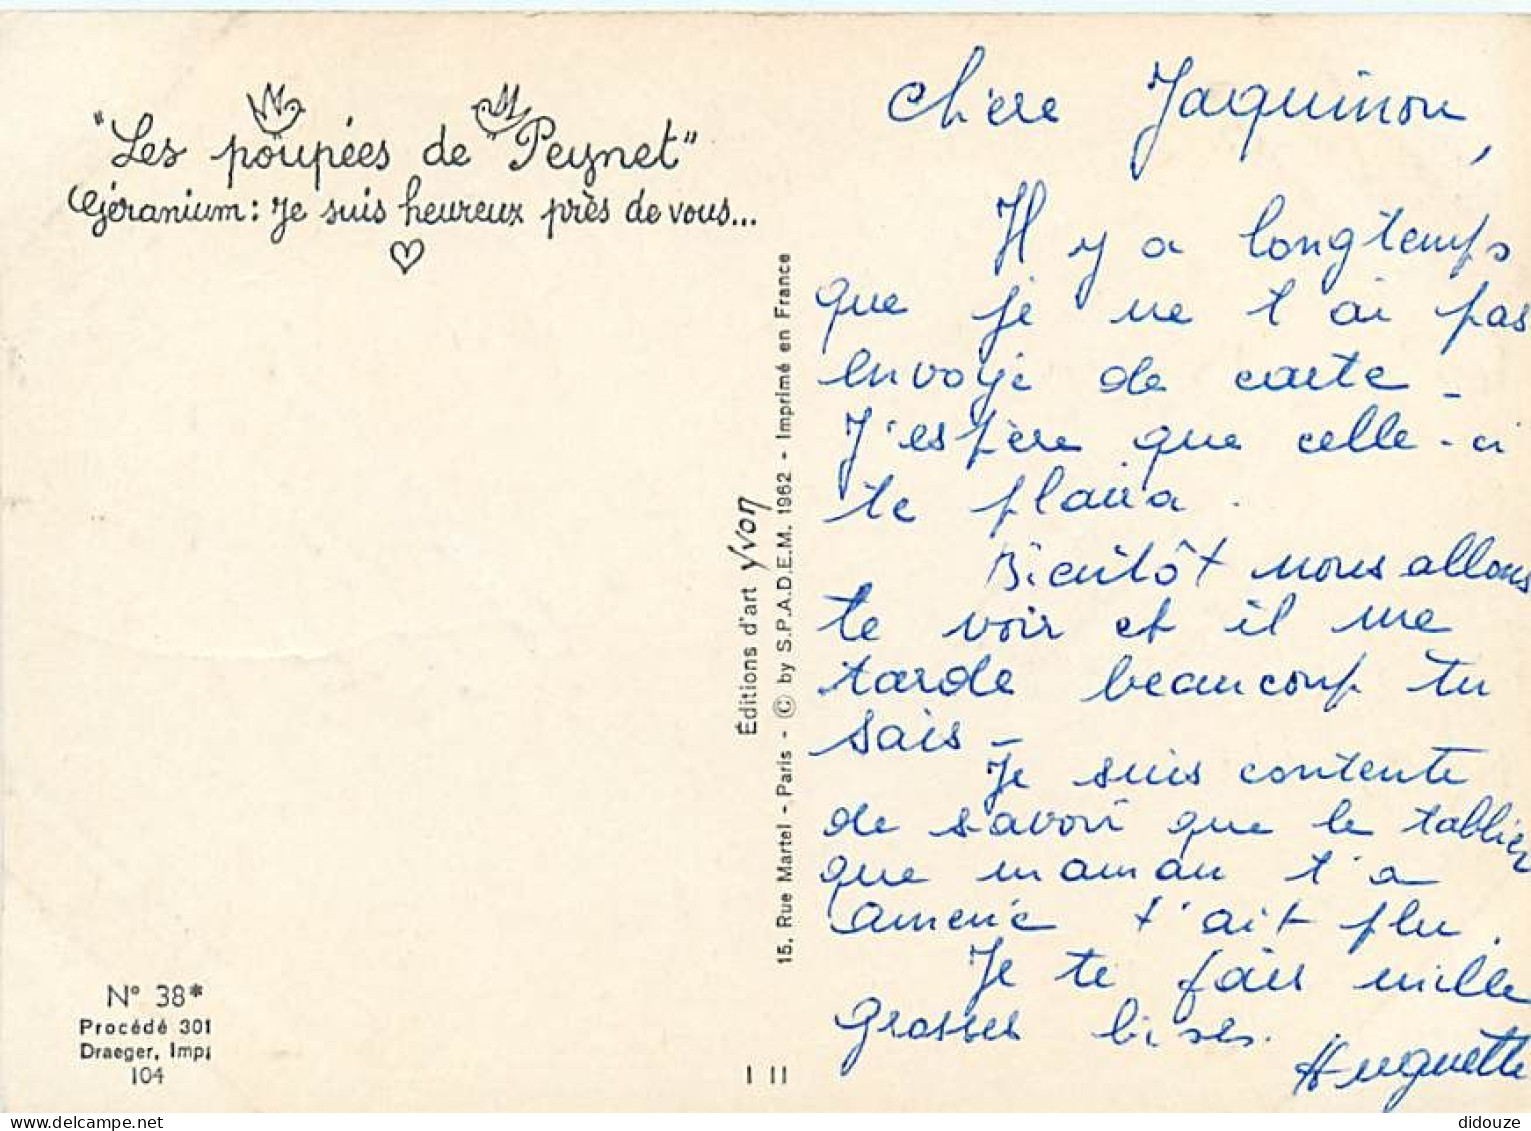 "Les poupées de "Peynet"
Géranium: Je suis heureux près de vous...
Éditions d'art Yvon
15, Rue Martel - Paris - © by S.P.A.D.E.M. 1962 - Imprimé en France
N° 38*
Procédé 301
Draeger, Imp;
104
I II
Chère Jaquinou,
Il y a longtemps
que je ne t'ai pas
envoyé de carte -
J'espère que celle-ci
te plaira.
Bientôt nous allons
te voir et il me
tarde beaucoup tu
sais -
Je suis contente
de savoir que le tablier
que maman t'a
amené t'ait plu.
Je te fais mille
grosses bises.
Huguette
didouze